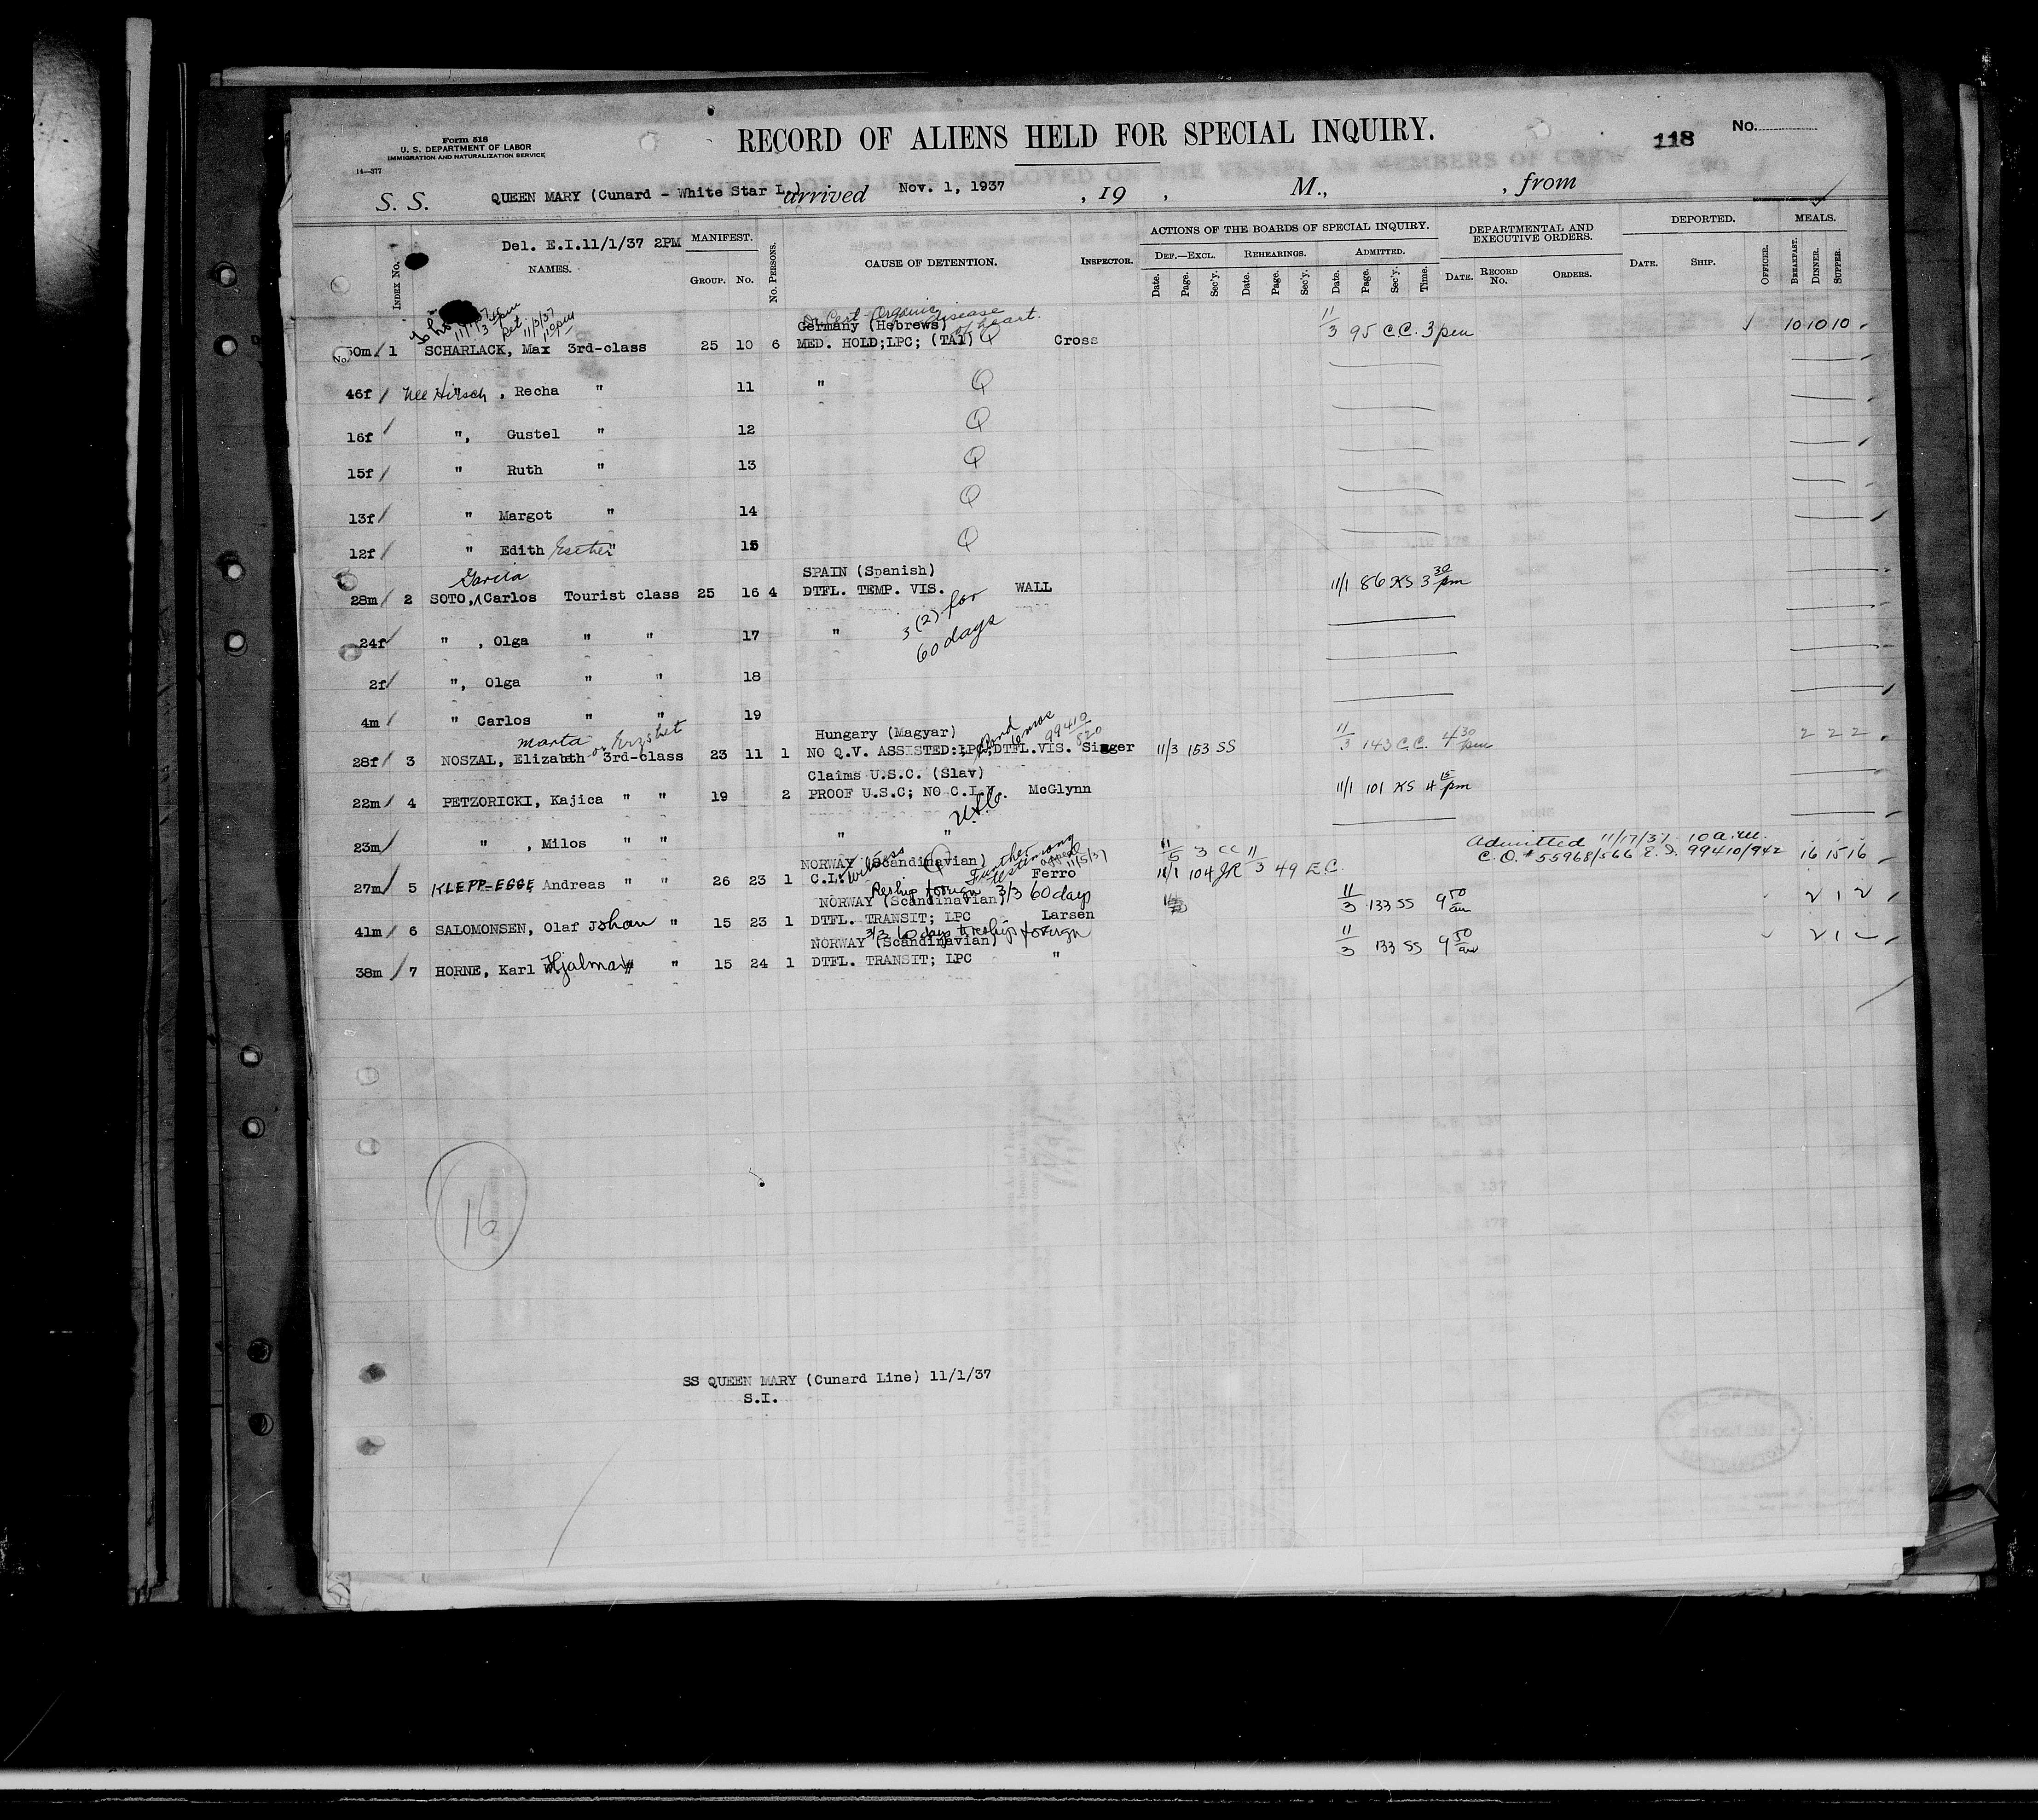 Form 518
U. S. DEPARTMENT OF LABOR
IMMIGRATION AND NATURALIZATION SERVICE
14—377
RECORD OF ALIENS HELD FOR SPECIAL INQUIRY.
118
No.
S. S. QUEEN MARY (Cunard - White Star L.) arrived Nov. 1, 1937 , 19 , M., , from
Del. E.I.11/1/37 2PM
INDEX No. NAMES. MANIFEST. GROUP. No. No. PERSONS. CAUSE OF DETENTION. INSPECTOR. ACTIONS OF THE BOARDS OF SPECIAL INQUIRY. DEF.—EXCL. Date. Page. Sec'y. REHEARINGS. Date. Page. Sec'y. ADMITTED. Date. Page. Sec'y. Time. DEPARTMENTAL AND EXECUTIVE ORDERS. DATE. RECORD No. ORDERS. DEPORTED. DATE. SHIP. OFFICER. MEALS. BREAKFAST. DINNER. SUPPER.
Dr. Cert - Organic disease of heart.
Germany (Hebrews)
50m 1 SCHARLACK, Max 3rd-class 25 10 6 MED. HOLD;LPC; (TAI) Q Cross 11/3 95 C.C. 3 pm 10 10 10
46f nee Hirsch , Recha " 11 " Q
16f ", Gustel " 12 Q
15f " Ruth " 13 Q
13f " Margot " 14 Q
12f " Edith Esther " 15 Q
Garcia SPAIN (Spanish)
28m 2 SOTO, Carlos Tourist class 25 16 4 DTFL. TEMP. VIS. WALL 11/1 86 KS 3 30 pm
24f " , Olga " " 17 " 3 (2) for
60 days
2f ", Olga " " 18
4m " Carlos " " 19
Marta or Erzsbet Hungary (Magyar) 99410/820
28f 3 NOSZAL, Elizabeth 3rd-class 23 11 1 NO Q.V. ASSISTED;LPC;DTFL.VIS. Singer 11/3 153 SS 11/3 143 C.C. 4 30 pm 2 2 2
Claims U.S.C. (Slav)
22m 4 PETZORICKI, Kajica " " 19 2 PROOF U.S.C; NO C.I.V. McGlynn 11/1 101 KS 4 15 pm
23m " , Milos " " " "
Admitted 11/17/37 10 a.m.
C.O. # 55968/566 E.I. 99410/942 16 15 16
NORWAY (Scandinavian) Further testimony appeal 11/5/37 11/5 3 CC
27m 5 KLEPP-EGGE, Andreas " " 26 23 1 C.I. Witness Ferro 11/1 104 JR 11/3 49 E.C.
Reship foreign 3/3 60 days
NORWAY (Scandinavian)
41m 6 SALOMONSEN, Olaf Johan " 15 23 1 DTFL. TRANSIT; LPC Larsen 11/3 133 SS 9 50 am 2 1 2
3/3 60 days to reship foreign
NORWAY (Scandinavian)
38m 7 HORNE, Karl Hjalmar " 15 24 1 DTFL. TRANSIT; LPC " 11/3 133 SS 9 50 am 2 1
16
SS QUEEN MARY (Cunard Line) 11/1/37
S.I.